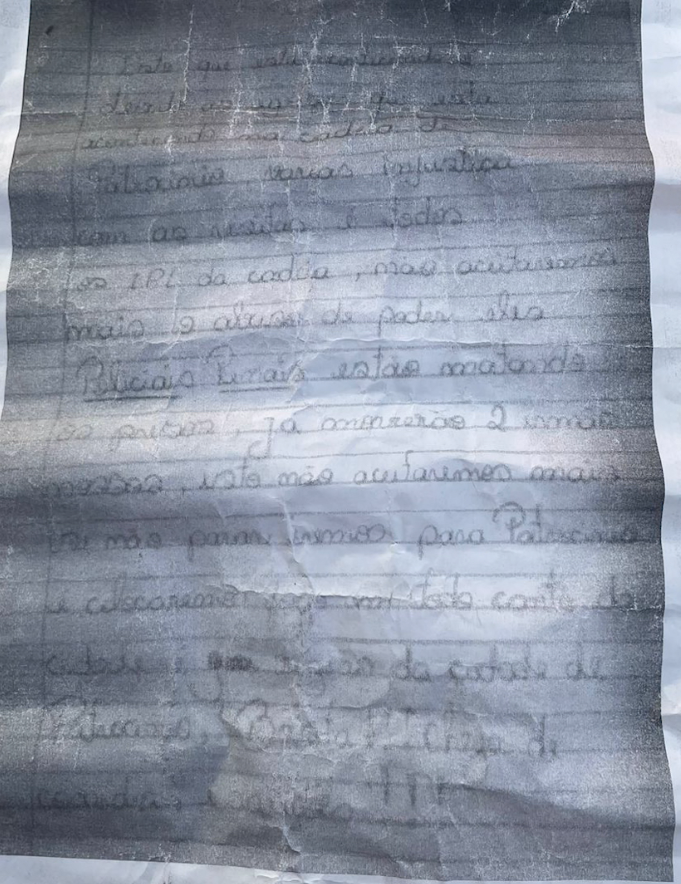 Este que esta
devido as que esta
acontecendo na cadeia de
Patrocinio, varias injustiça
com as visitas e todos
os IPL da cadeia, não aceitaremos
mais o abuso de poder, eles
Policiais Penais estão matando
os presos, Ja morrerão 2 irmão
nossos, isto não aceitaremos mais
se não parar iremos para Patrocinio
e colocaremos fogo em todo canto da
cidade e da cidade de
Patrocinio, Basta! Chega de
covardia e